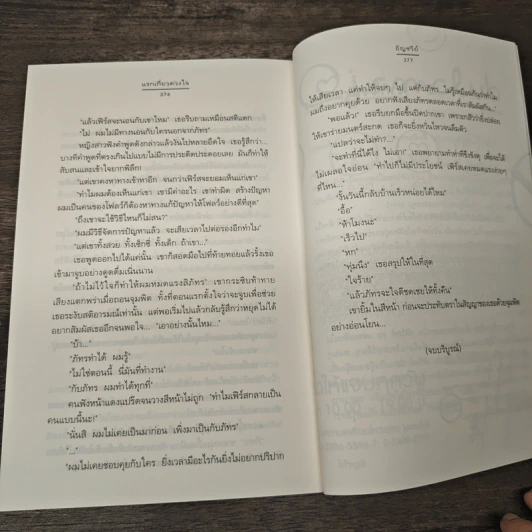 แรกเกี่ยวดวงใจ
276
"แล้วเฟิร์สจะนอนกับเขาไหม" เธอรีบถามเหมือนสติแตก
"ไม่ ผมไม่มีทางนอนกับใครนอกจากภัทร"
หญิงสาวฟังคำพูดดังกล่าวแล้วเงินไปหลายอึดใจ เธอรู้สึกว่า...
บางทีคำพูดที่ตรงเกินไปแบบไม่มีการประดิดประดอยเลย มันก็ทำให้
สับสนและเข้าใจยากพิลึก!
"แต่เขาคงหาทางเข้าหาอีก จนกว่าเฟิร์สจะยอมแก่เขา"
"ทำไมผมต้องเห็นแก่เขา เขามีค่าอะไร เขาทำผิด สร้างปัญหา
ผมเป็นคนของโฟลว์ก็ต้องหาทางแก้ปัญหาให้โฟลว์อย่างดีที่สุด"
"ถึงเขาจะใช้วิธีไหนก็ไม่สน?"
"ผมมีวิธีจัดการปัญหาแล้ว จะเสียเวลาไปต่อรองอีกทำไม"
"แต่เขาทั้งสวย ทั้งเซ็กซี่ ทั้งเด็ก ถ้าเขา..."
เธอพูดออกไปได้แค่นั้น เขาก็สอดมือไปที่ท้ายทอยแล้วรั้งเธอ
เข้ามาจูบอย่างดูดดื่มเนิ่นนาน
"ถ้าไม่ไว้ใจก็ทำให้ผมหมดแรงสิภัทร" เขากระซิบท้าทาย
เสียงแตกพร่าเมื่อถอนจุมพิต ทั้งที่ตอนแรกตั้งใจว่าจะจูบเพื่อช่วย
เธอระงับสติอารมณ์เท่านั้น แต่พอเริ่มไปแล้วกลับรู้สึกว่าหยุดไม่ได้
อยากสัมผัสเธออีกจนพอใจ... "เอาอย่างนั้นไหม..."
"บ้า..."
"ภัทรทำได้ ผมรู้"
"ไม่ใช่ตอนนี้ นี่มันที่ทำงาน"
"กับภัทร ผมทำได้ทุกที่"
คนฟังหน้าแดงแปร๊ดจนวางสีหน้าไม่ถูก "ทำไมเฟิร์สกลายเป็น
คนแบบนี้นะ!"
"นั่นสิ ผมไม่เคยเป็นมาก่อน เพิ่งมาเป็นกับภัทร"
"..."
"ผมไม่เคยชอบคุยกับใคร ยิ่งเวลามีอะไรกันยิ่งไม่อยากปริปาก
อัญชรีย์
277
ให้เสียเวลา แค่ทำให้จบๆ ไป แต่กับภัทร...ไม่รู้เหมือนกันว่าทำไม
ผมถึงอยากคุยด้วย อยากฟังเสียงภัทรตลอดเวลาที่เราสัมผัสกัน..."
"พอแล้ว!" เธอรีบยกมือขึ้นปิดปากเขา เพราะกลัวว่ายิ่งปล่อย
ให้เขาร่ายมนตร์สะกด เธอก็จะยิ่งหวั่นไหวจนลืมตัว
"แปลว่าจะไม่ทำ?..."
"จะทำที่นี่ได้ไง ไม่เอา!" เธอพยายามทำท่าทีขึงขัง เพื่อจะได้
ไม่เผลอใจอ่อน "ทำไปก็ไม่มีประโยชน์ เฟิร์สเคยหมดแรงง่ายๆ
ที่ไหน..."
"งั้นวันนี้กลับบ้านเร็วหน่อยได้ไหม"
"อื้อ"
"ห้าโมงนะ"
"เร็วไป"
"หก"
"ทุ่มนึง" เธอสรุปให้ในที่สุด
"ใจร้าย"
"แล้วภัทรจะใจดีชดเชยให้ทั้งคืน"
เขายิ้มในสีหน้า ก่อนจะประทับตราในสัญญาของเธอด้วยจุมพิต
อย่างอ่อนโยน...
(จบบริบูรณ์)